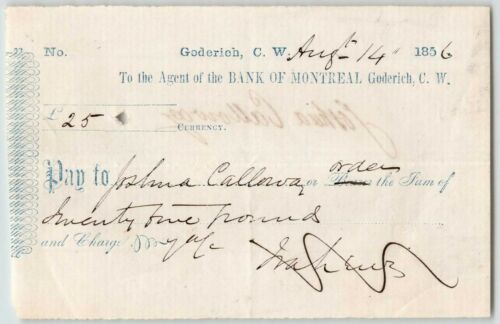 No. Goderich, C. W. Augt 14 1856
To the Agent of the BANK OF MONTREAL Goderich, C. W.
£ 25 CURRENCY.
Joshua Calloway
Pay to Joshua Calloway or order Bearer the Sum of
Twenty five pounds
and Charge My a/c